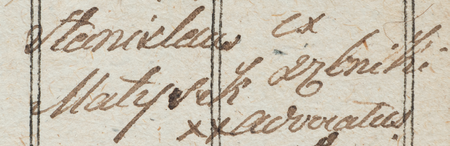 Stanislaus ex
Matyssek
xx advocatus